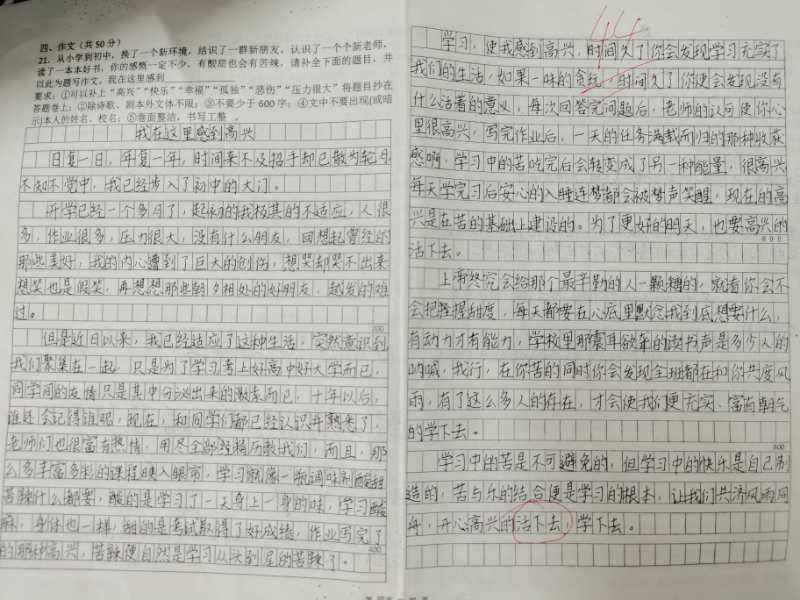 四、作文（共50分）
21．从小学到初中，换了一个新环境，结识了一群新朋友，认识了一个个新老师，
读了一本本好书，你的感触一定不少，有酸甜也会有苦辣，请补全下面的题目，并
以此为题写作文。我在这里感到
要求：①可以补上“高兴”“快乐”“幸福”“孤独”“悲伤”“压力很大”等将题目抄在
答题卷上；②除诗歌、剧本外文体不限；③不要少于600字；④文中不要出现(或暗
示)本人的姓名、校名；⑤卷面整洁，书写工整。
我在这里感到高兴
日复一日，年复一年，时间来不及招手却已散为轮月
不知不觉中，我已经步入了初中的大门。
开学已经一个多月了，起初的我极其的不适应，人很
多，作业很多，压力很大，没有什么朋友，回想起曾经的
那些美好，我的内心遭到了巨大的创伤，想哭却哭不出来
想笑也是假笑，再想想那些朝夕相处的好朋友，越发的难
过。
但是近日以来，我已经适应了这种生活，突然意识到
我们聚集在一起，只是为了学习考上好高中好大学而已，
同学间的友情只是其中分泌出来的激素而已，十年以后，
谁还会记得谁呢，现在，和同学们都已经认识并熟悉了，
老师们也很富有热情，用尽全部经精历教我们，而且，那
么多丰富多彩的课程映入眼帘，学习就像一瓶调味剂酸甜
苦辣什么都要，酸的是学习了一天身上一身的味，学习酸
麻，身体也一样，甜的是考试取得了好成绩，作业写完了
的那种高兴，苦辣便自然是学习从达到尾的苦辣了。
400
44
学习，使我感到高兴，时间久了你会发现学习充实了
我们的生活，如果一味的贪玩，时间久了你便会发现没有
什么活着的意义，每次回答完问题后，老师的认同使你心
里很高兴，写完作业后，一天的任务满载而归的那种收获
感啊，学习中的苦吃完后会转变成了另一种能量，很高兴
每天学完习后安心的入睡连梦都会被梦声笑醒，现在的高
兴是在苦的基础上建设的。为了更好的明天，也要高兴的
600
活下去。
上帝终究会给那个最辛勤的人一颗糖的，就看你会不
会把握握甜度，每天都要在心底里默念我到底想要什么，
有动力才有能力，学校里那震耳欲聋的读书声是多少人的
呐喊，我行，在你苦的同时你会发现全班都在和你共度风
雨，有了这么多人的存在，才会使我们更充实、富有朝气
的学下去。
800
学习中的苦是不可避免的，但学习中的快乐是自己创
造的，苦与乐的结合便是学习的根本，让我们共济风雨同
舟，开心高兴的活下去，学下去。